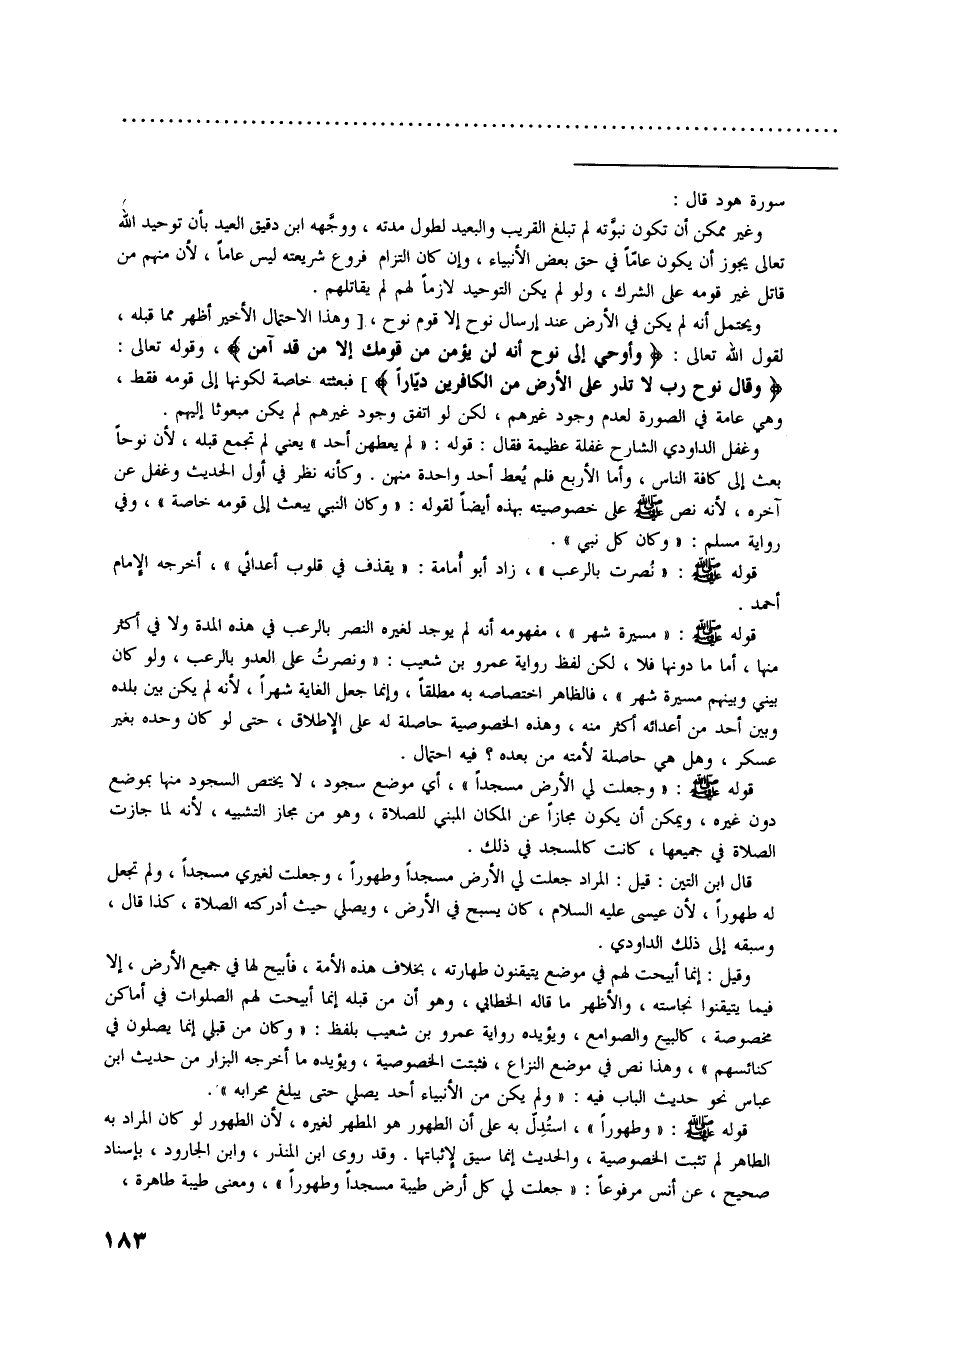 سورة هود قال :
وغير ممكن أن تكون نبوَّته لم تبلغ القريب والبعيد لطول مدته ، ووجَّهه ابن دقيق العيد بأن توحيد الله
تعالى يجوز أن يكون عامّاً في حق بعض الأنبياء ، وإن كان التزام فروع شريعته ليس عاماً ، لأن منهم من
قاتل غير قومه على الشرك ، ولو لم يكن التوحيد لازماً لهم لم يقاتلهم .
ويحتمل أنه لم يكن في الأرض عند إرسال نوح إلا قوم نوح ، [ وهذا الاحتمال الأخير أظهر مما قبله ،
لقول الله تعالى : ﴿ وأوحي إلى نوح أنه لن يؤمن من قومك إلا من قد آمن ﴾ ، وقوله تعالى :
﴿ وقال نوح رب لا تذر على الأرض من الكافرين ديّاراً ﴾ ] فبعثته خاصة لكونها إلى قومه فقط ،
وهي عامة في الصورة لعدم وجود غيرهم ، لكن لو اتفق وجود غيرهم لم يكن مبعوثا إليهم .
وغفل الداودي الشارح غفلة عظيمة فقال : قوله : « لم يعطهن أحد » يعني لم تجمع قبله ، لأن نوحاً
بعث إلى كافة الناس ، وأما الأربع فلم يُعط أحد واحدة منهن . وكأنه نظر في أول الحديث وغفل عن
آخره ، لأنه نص ﷺ على خصوصيته بهذه أيضاً لقوله : « وكان النبي يبعث إلى قومه خاصة » ، وفي
رواية مسلم : « وكان كل نبي » .
قوله ﷺ : « نُصرت بالرعب » ، زاد أبو أُمامة : « يقذف في قلوب أعدائي » ، أخرجه الإمام
أحمد .
قوله ﷺ : « مسيرة شهر » ، مفهومه أنه لم يوجد لغيره النصر بالرعب في هذه المدة ولا في أكثر
منها ، أما ما دونها فلا ، لكن لفظ رواية عمرو بن شعيب : « ونصرتُ على العدو بالرعب ، ولو كان
بيني وبينهم مسيرة شهر » ، فالظاهر اختصاصه به مطلقاً ، وإنما جعل الغاية شهراً ، لأنه لم يكن بين بلده
وبين أحد من أعدائه أكثر منه ، وهذه الخصوصية حاصلة له على الإطلاق ، حتى لو كان وحده بغير
عسكر ، وهل هي حاصلة لأمته من بعده ؟ فيه احتمال .
قوله ﷺ : « وجعلت لي الأرض مسجداً » ، أي موضع سجود ، لا يختص السجود منها بموضع
دون غيره ، ويمكن أن يكون مجازاً عن المكان المبني للصلاة ، وهو من مجاز التشبيه ، لأنه لما جازت
الصلاة في جميعها ، كانت كالمسجد في ذلك .
قال ابن التين : قيل : المراد جعلت لي الأرض مسجداً وطهوراً ، وجعلت لغيري مسجداً ، ولم تجعل
له طهوراً ، لأن عيسى عليه السلام ، كان يسبح في الأرض ، ويصلي حيث أدركته الصلاة ، كذا قال ،
وسبقه إلى ذلك الداودي .
وقيل : إنما أبيحت لهم في موضع يتيقنون طهارته ، بخلاف هذه الأمة ، فأبيح لها في جميع الأرض ، إلا
فيما يتيقنوا نجاسته ، والأظهر ما قاله الخطابي ، وهو أن من قبله إنما أبيحت لهم الصلوات في أماكن
مخصوصة ، كالبيع والصوامع ، ويؤيده رواية عمرو بن شعيب بلفظ : « وكان من قبلي إنما يصلون في
كنائسهم » ، وهذا نص في موضع النزاع ، فثبتت الخصوصية ، ويؤيده ما أخرجه البزار من حديث ابن
عباس نحو حديث الباب فيه : « ولم يكن من الأنبياء أحد يصلي حتى يبلغ محرابه » .
قوله ﷺ : « وطهوراً » ، استُدِلّ به على أن الطهور هو المطهر لغيره ، لأن الطهور لو كان المراد به
الطاهر لم تثبت الخصوصية ، والحديث إنما سيق لإثباتها . وقد روى ابن المنذر ، وابن الجارود ، بإسناد
صحيح ، عن أنس مرفوعاً : « جعلت لي كل أرض طيبة مسجداً وطهوراً » ، ومعنى طيبة طاهرة ،
١٨٣